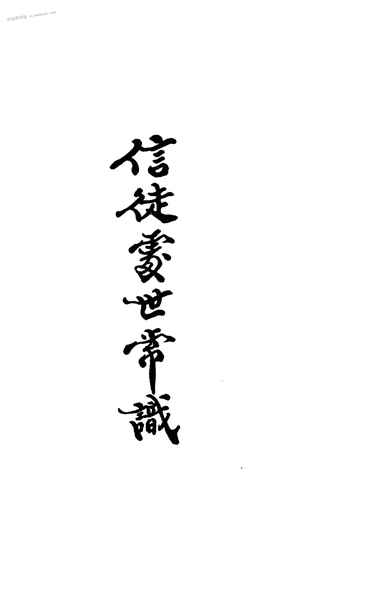 信徒處世常識